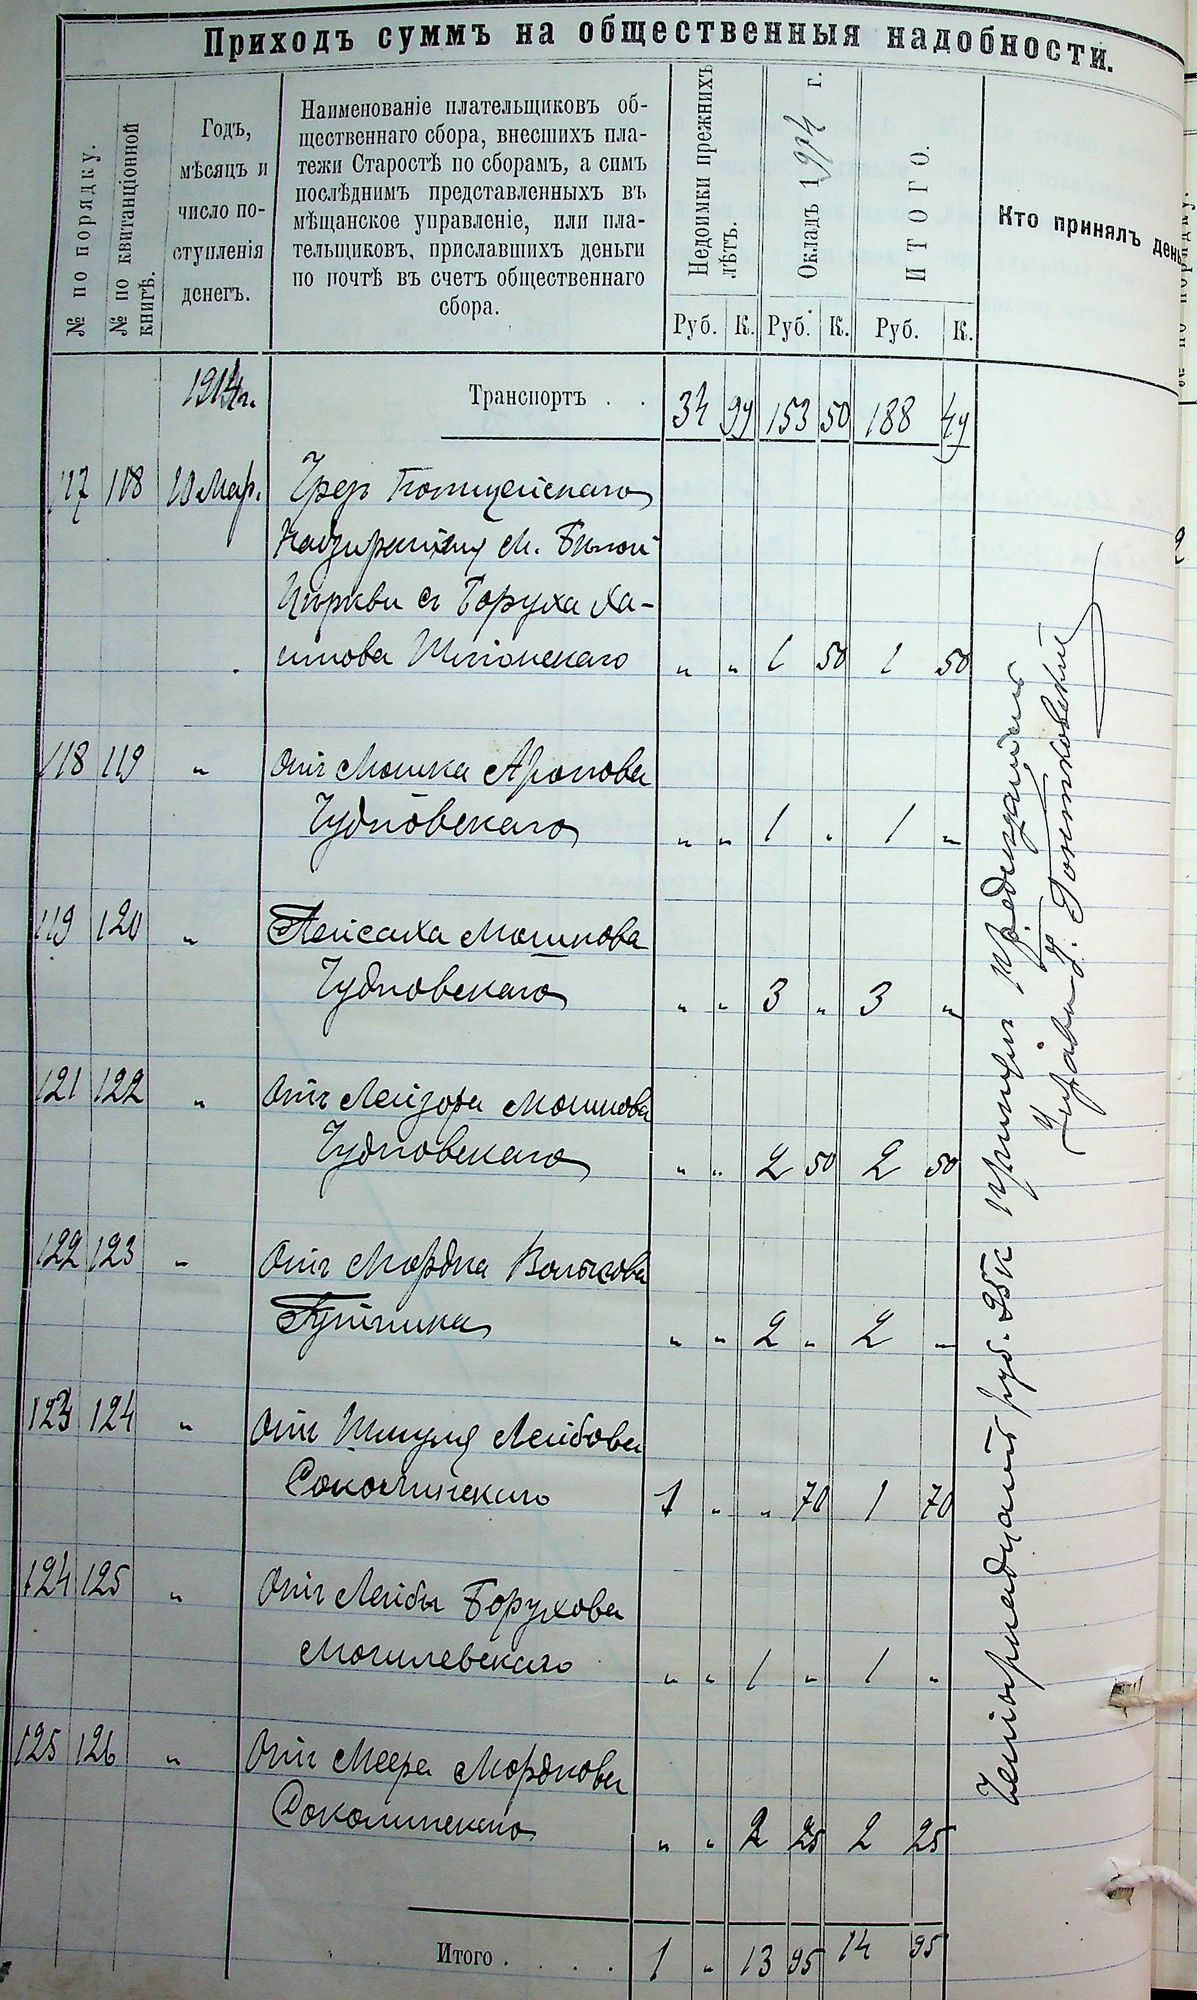 Приходъ суммъ на общественныя надобности.
№ по порядку.
№ по квитанціонной книгѣ.
Годъ,
мѣсяцъ и
число по-
ступленія
денегъ.
Наименованіе плательщиковъ об-
щественнаго сбора, внесшихъ пла-
тежи Старостѣ по сборамъ, а симъ
послѣднимъ представленныхъ въ
мѣщанское управленіе, или пла-
тельщиковъ, приславшихъ деньги
по почтѣ въ счетъ общественнаго
сбора.
Недоимки прежнихъ
лѣтъ.
Окладъ 1914 г.
ИТОГО.
Кто принялъ день
Руб. К. Руб. К. Руб. К.
1914 г. Транспортъ . . 34 99 153 50 188 49
117 118 20 Мар. Чрез Полицейскаго
Надзирателя м. Белой
Церкви съ Боруха Ха-
имова " " 1 50 1 50
118 119 " Отъ Мошка Аронова
Чудновскаго " " 1 " 1 "
119 120 " Пейсаха Мошкова
Чудновскаго " " 3 " 3 "
121 122 " Отъ Лейзора Мошкова
Чудновскаго " " 2 50 2 50
122 123 " Отъ Мордка Волькова
" " 2 " 2 "
123 124 " Отъ Шмуля Лейбова
Соколинскаго 1 " " 70 1 70
124 125 " Отъ Лейбы Борухова
Могилевскаго " " 1 " 1 "
125 126 " Отъ Меера Мордкова
Соколинскаго " " 2 25 2 25
Итого . . . . 1 " 13 95 14 95
Четырнадцать руб. 95 к принялъ Председатель
Управы